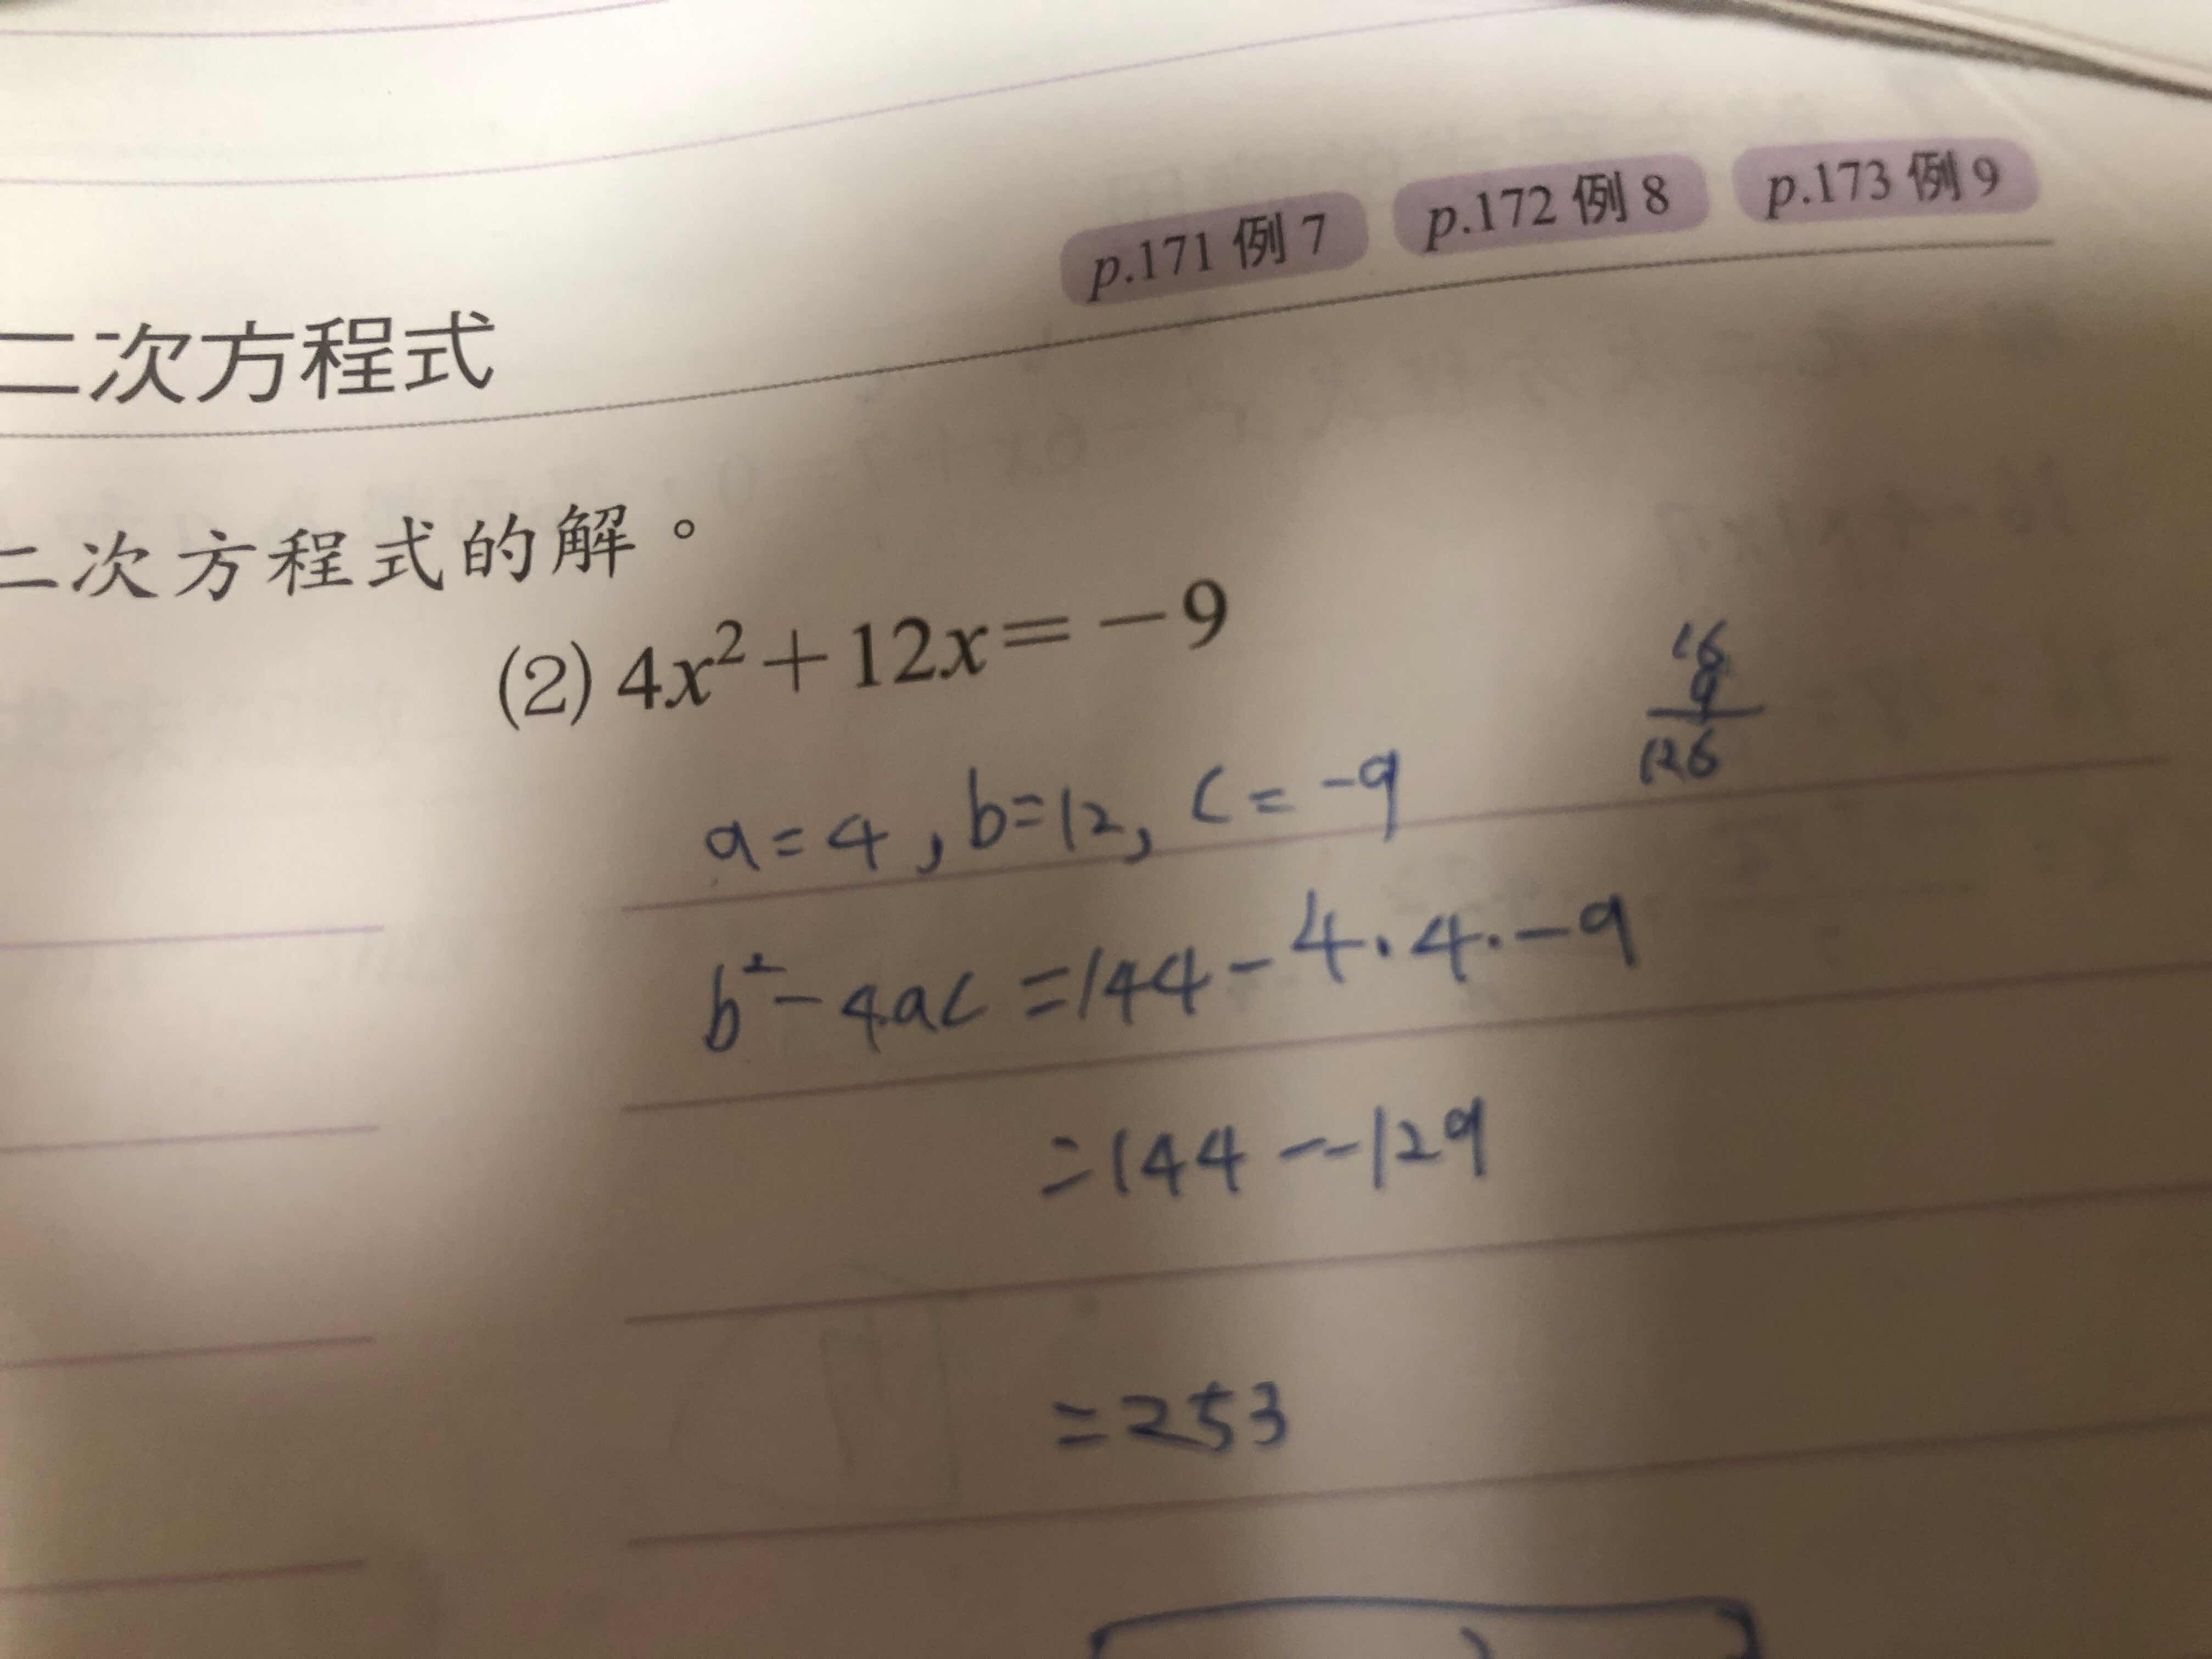 p.171 例 7 p.172 例 8 p.173 例 9
二次方程式
二次方程式的解。
(2) 4x²+12x=-9
16
9
126
a=4, b=12, c=-9
b²-4ac=144-4·4·-9
=144--129
=253